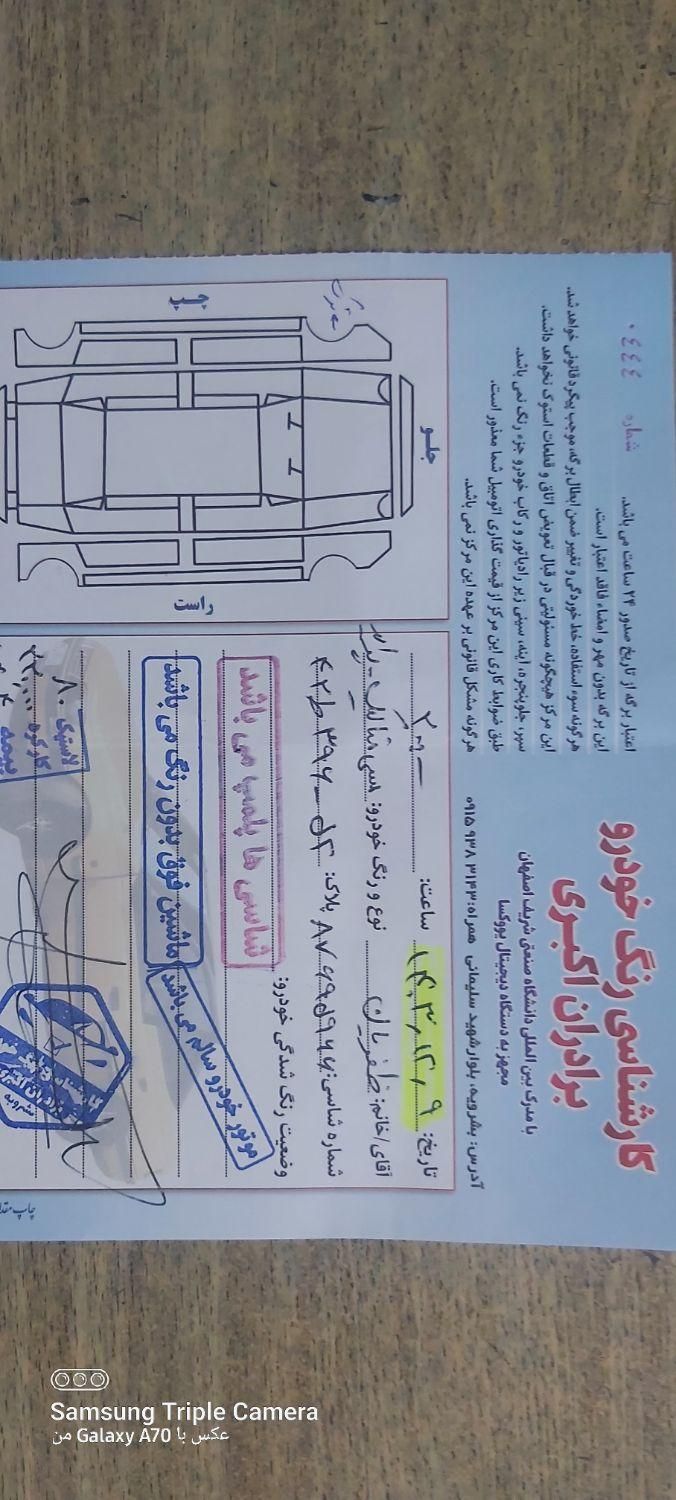 کارشناسی رنگ خودرو
برادران اکبری
با مدرک بین المللی دانشگاه صنعتی شریف اصفهان
مجهز به دستگاه دیجیتال یووکسا
آدرس: بشرویه، بلوار شهید سلیمانی همراه: ۳۱۴۳ ۹۳۸ ۰۹۱۵
شماره ۰۴۴۴
اعتبار برگه از تاریخ صدور ۲۴ ساعت می باشد.
این برگه بدون مهر و امضاء فاقد اعتبار است.
هرگونه سوء استفاده، خط خوردگی و تغییر ضمن ابطال برگه، موجب پیگرد قانونی خواهد شد.
این مرکز هیچگونه مسئولیتی در قبال تعویض اتاق و قطعات استوک نخواهد داشت.
سپر، جلوپنجره، آینه، سینی زیر رادیاتور و رکاب خودرو جزء رنگ نمی باشد.
طبق ضوابط کاری این مرکز از قیمت گذاری اتومبیل شما معذور است.
هرگونه مشکل قانونی بر عهده این مرکز نمی باشد.
تاریخ: ۱۴۰۳٫۱۲٫۹ ساعت:
آقای/خانم: نوع و رنگ خودرو:
شماره شاسی: پلاک:
وضعیت رنگ شدگی خودرو:
شاسی ها پلمپ می باشد
ماشین فوق بدون رنگ می باشد
موتور خودرو سالم می باشد
لاستیک ۸۰
کارکرد
بیمه
جلو
چپ
راست
Samsung Triple Camera
عکس با Galaxy A70 من